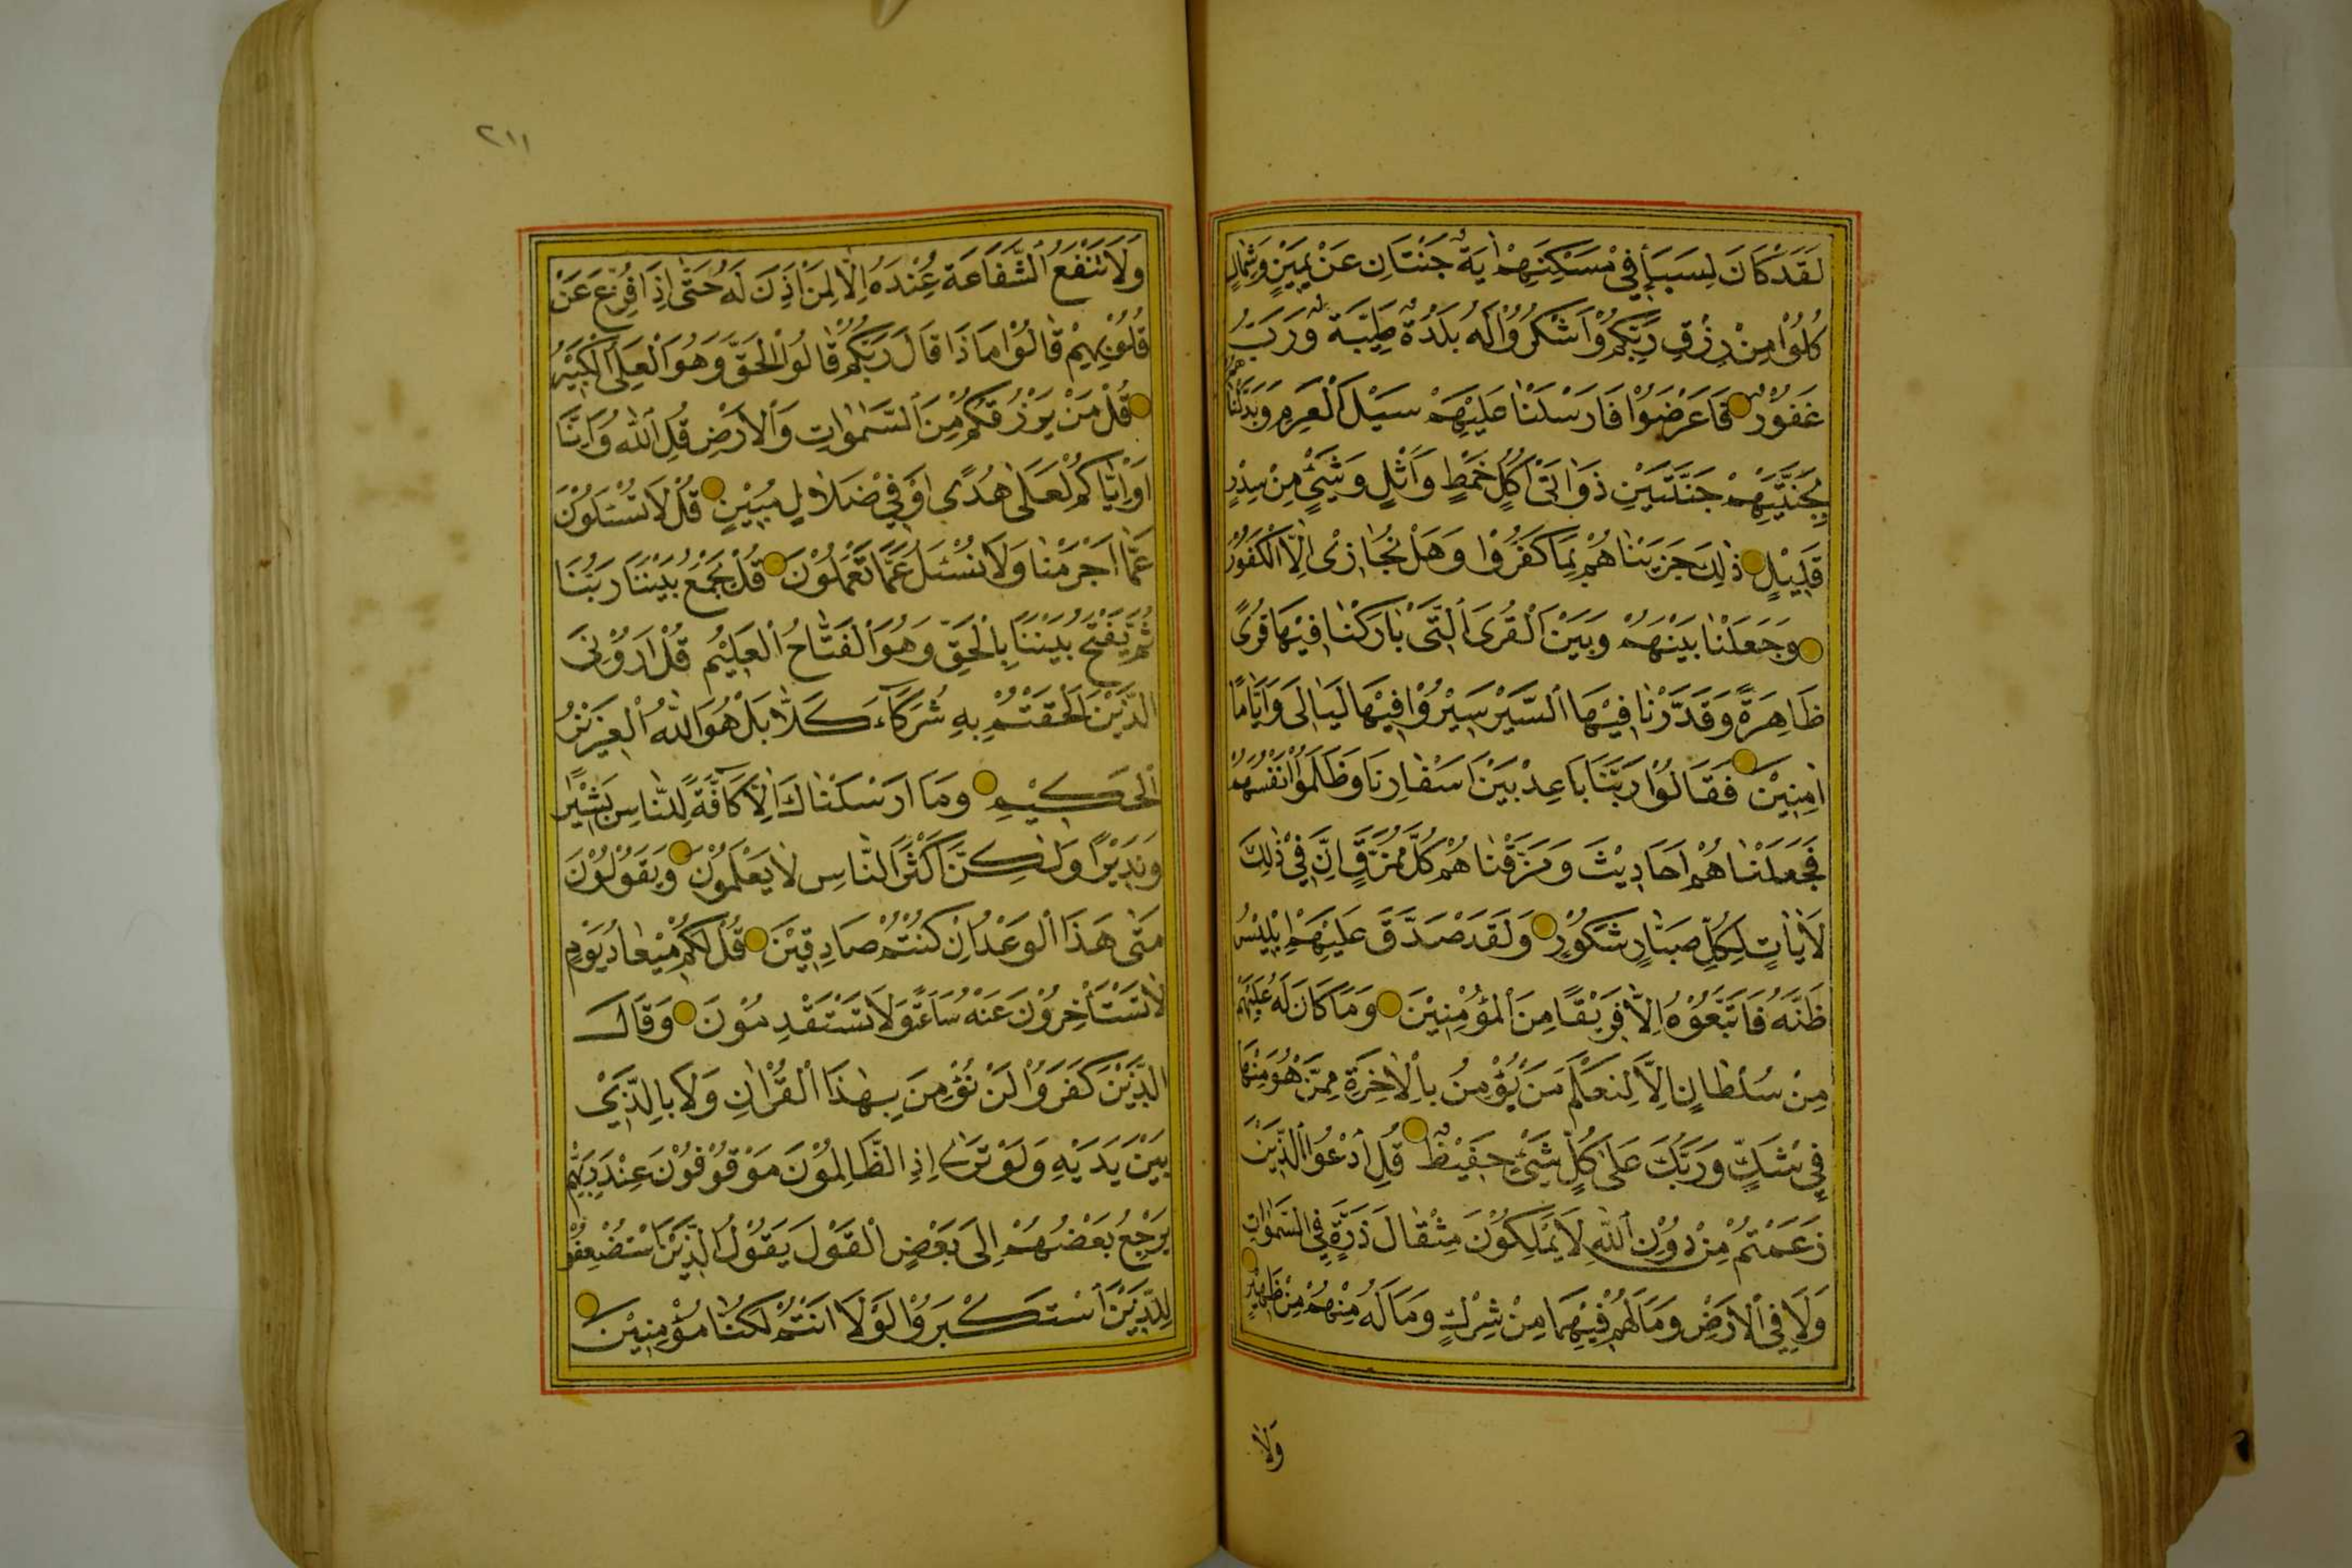 لَقَدْ كَانَ لِسَبَأٍ فِي مَسْكَنِهِمْ اٰيَةٌ جَنَّتَانِ عَنْ يَمِينٍ وَشِمَالٍ
كُلُوْا مِنْ رِزْقِ رَبِّكُمْ وَاشْكُرُوْا لَهُ بَلْدَةٌ طَيِّبَةٌ وَرَبٌّ
غَفُوْرٌ فَاَعْرَضُوْا فَاَرْسَلْنَا عَلَيْهِمْ سَيْلَ الْعَرِمِ وَبَدَّلْنَاهُمْ
بِجَنَّتَيْهِمْ جَنَّتَيْنِ ذَوَاتَىْ اُكُلٍ خَمْطٍ وَاَثْلٍ وَشَيْءٍ مِنْ سِدْرٍ
قَلِيْلٍ ذٰلِكَ جَزَيْنَاهُمْ بِمَا كَفَرُوْا وَهَلْ نُجَازِى اِلَّا الْكَفُوْرَ
وَجَعَلْنَا بَيْنَهُمْ وَبَيْنَ الْقُرَى الَّتِى بَارَكْنَا فِيْهَا قُرًى
ظَاهِرَةً وَقَدَّرْنَا فِيْهَا السَّيْرَ سِيْرُوْا فِيْهَا لَيَالِىَ وَاَيَّامًا
اٰمِنِيْنَ فَقَالُوْا رَبَّنَا بَاعِدْ بَيْنَ اَسْفَارِنَا وَظَلَمُوْا اَنْفُسَهُمْ
فَجَعَلْنَاهُمْ اَحَادِيْثَ وَمَزَّقْنَاهُمْ كُلَّ مُمَزَّقٍ اِنَّ فِيْ ذٰلِكَ
لَاٰيَاتٍ لِكُلِّ صَبَّارٍ شَكُوْرٍ وَلَقَدْ صَدَّقَ عَلَيْهِمْ اِبْلِيْسُ
ظَنَّهُ فَاتَّبَعُوْهُ اِلَّا فَرِيْقًا مِنَ الْمُؤْمِنِيْنَ وَمَا كَانَ لَهُ عَلَيْهِمْ
مِنْ سُلْطَانٍ اِلَّا لِنَعْلَمَ مَنْ يُؤْمِنُ بِالْاٰخِرَةِ مِمَّنْ هُوَ مِنْهَا
فِيْ شَكٍّ وَرَبُّكَ عَلَى كُلِّ شَيْءٍ حَفِيْظٌ قُلِ ادْعُوا الَّذِيْنَ
زَعَمْتُمْ مِنْ دُوْنِ اللّٰهِ لَا يَمْلِكُوْنَ مِثْقَالَ ذَرَّةٍ فِي السَّمٰوَاتِ
وَلَا فِي الْاَرْضِ وَمَا لَهُمْ فِيْهِمَا مِنْ شِرْكٍ وَمَا لَهُ مِنْهُمْ مِنْ ظَهِيْرٍ
وَلَا
٢١١
وَلَا تَنْفَعُ الشَّفَاعَةُ عِنْدَهُ اِلَّا لِمَنْ اَذِنَ لَهُ حَتّٰى اِذَا فُزِّعَ عَنْ
قُلُوْبِهِمْ قَالُوْا مَاذَا قَالَ رَبُّكُمْ قَالُوا الْحَقَّ وَهُوَ الْعَلِىُّ الْكَبِيْرُ
قُلْ مَنْ يَرْزُقُكُمْ مِنَ السَّمٰوَاتِ وَالْاَرْضِ قُلِ اللّٰهُ وَاِنَّا
اَوْ اِيَّاكُمْ لَعَلٰى هُدًى اَوْ فِيْ ضَلَالٍ مُبِيْنٍ قُلْ لَا تُسْئَلُوْنَ
عَمَّا اَجْرَمْنَا وَلَا نُسْئَلُ عَمَّا تَعْمَلُوْنَ قُلْ يَجْمَعُ بَيْنَنَا رَبُّنَا
ثُمَّ يَفْتَحُ بَيْنَنَا بِالْحَقِّ وَهُوَ الْفَتَّاحُ الْعَلِيْمُ قُلْ اَرُوْنِىَ
الَّذِيْنَ اَلْحَقْتُمْ بِهِ شُرَكَاءَ كَلَّا بَلْ هُوَ اللّٰهُ الْعَزِيْزُ
الْحَكِيْمُ وَمَا اَرْسَلْنَاكَ اِلَّا كَافَّةً لِلنَّاسِ بَشِيْرًا
وَنَذِيْرًا وَلٰكِنَّ اَكْثَرَ النَّاسِ لَا يَعْلَمُوْنَ وَيَقُوْلُوْنَ
مَتٰى هٰذَا الْوَعْدُ اِنْ كُنْتُمْ صَادِقِيْنَ قُلْ لَكُمْ مِيْعَادُ يَوْمٍ
لَا تَسْتَأْخِرُوْنَ عَنْهُ سَاعَةً وَلَا تَسْتَقْدِمُوْنَ وَقَالَ
الَّذِيْنَ كَفَرُوْا لَنْ نُؤْمِنَ بِهٰذَا الْقُرْاٰنِ وَلَا بِالَّذِىْ
بَيْنَ يَدَيْهِ وَلَوْ تَرٰى اِذِ الظَّالِمُوْنَ مَوْقُوْفُوْنَ عِنْدَ رَبِّهِمْ
يَرْجِعُ بَعْضُهُمْ اِلَى بَعْضٍ الْقَوْلَ يَقُوْلُ الَّذِيْنَ اسْتُضْعِفُوْا
لِلَّذِيْنَ اسْتَكْبَرُوْا لَوْلَا اَنْتُمْ لَكُنَّا مُؤْمِنِيْنَ